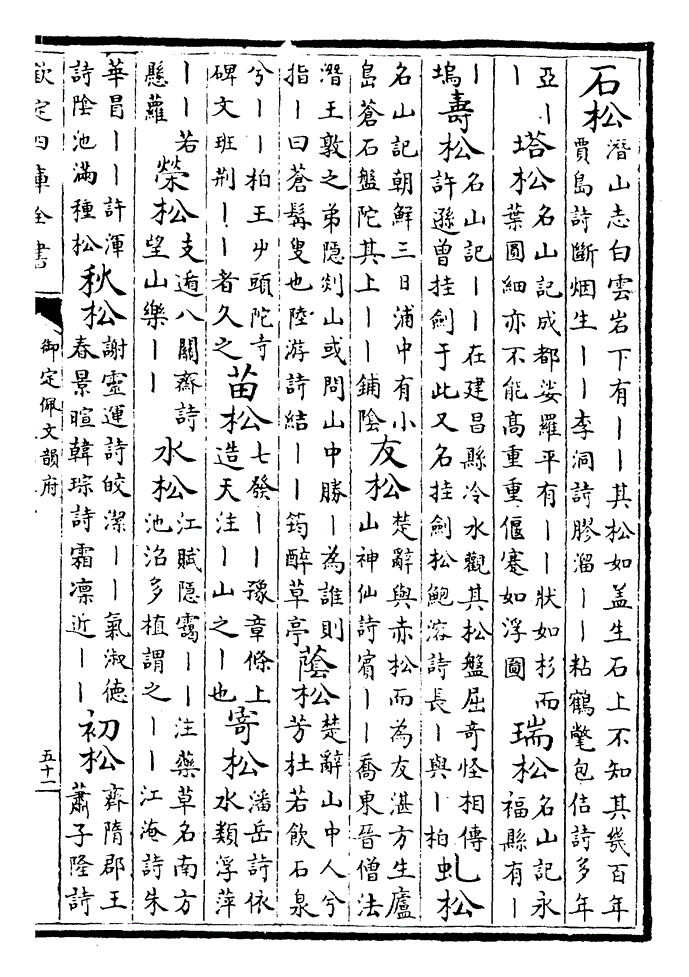 石松
潛山志白雲岩下有丨丨其松如盖生石上不知其幾百年
賈島詩斷烟生丨丨李洞詩膠溜丨丨粘鶴氅包佶詩多年
亞丨
丨
塔松
名山記成都娑羅平有丨丨狀如杉而
葉圓細亦不能髙重重偃蹇如浮圖
瑞松
名山記永
福縣有丨
丨
塢
壽松
名山記丨丨在建昌縣冷水觀其松盤屈奇怪相傳
許遜曾挂劍于此又名挂劍松鮑溶詩長丨與丨柏
虬松
名山記朝鮮三日浦中有小
島蒼石盤陀其上丨丨鋪陰
友松
楚辭與赤松而為友湛方生廬
山神仙詩賔丨丨喬東晉僧法
潛王敦之弟隱剡山或問山中勝丨為誰則
指丨曰蒼髯叟也陸游詩結丨丨筠醉草亭
蔭松
楚辭山中人兮
芳杜若飲石泉
兮丨丨柏王屮頭陀寺
碑文班荆丨丨者久之
苗松
七發丨丨豫章條上
造天注丨山之丨也
寄松
潘岳詩依
水類浮萍
丨丨若
懸蘿
榮松
支遁八關齋詩
望山樂丨丨
水松
江賦隱靄丨丨注藥草名南方
池沼多植謂之丨丨江淹詩朱
華昌丨丨許渾
詩陰池滿種松
秋松
謝靈運詩皎潔丨丨氣淑德
春景暄韓琮詩霜凛近丨丨
初松
齊隋郡王
蕭子隆詩
欽定四庫全書
御定佩文韻府
五十一